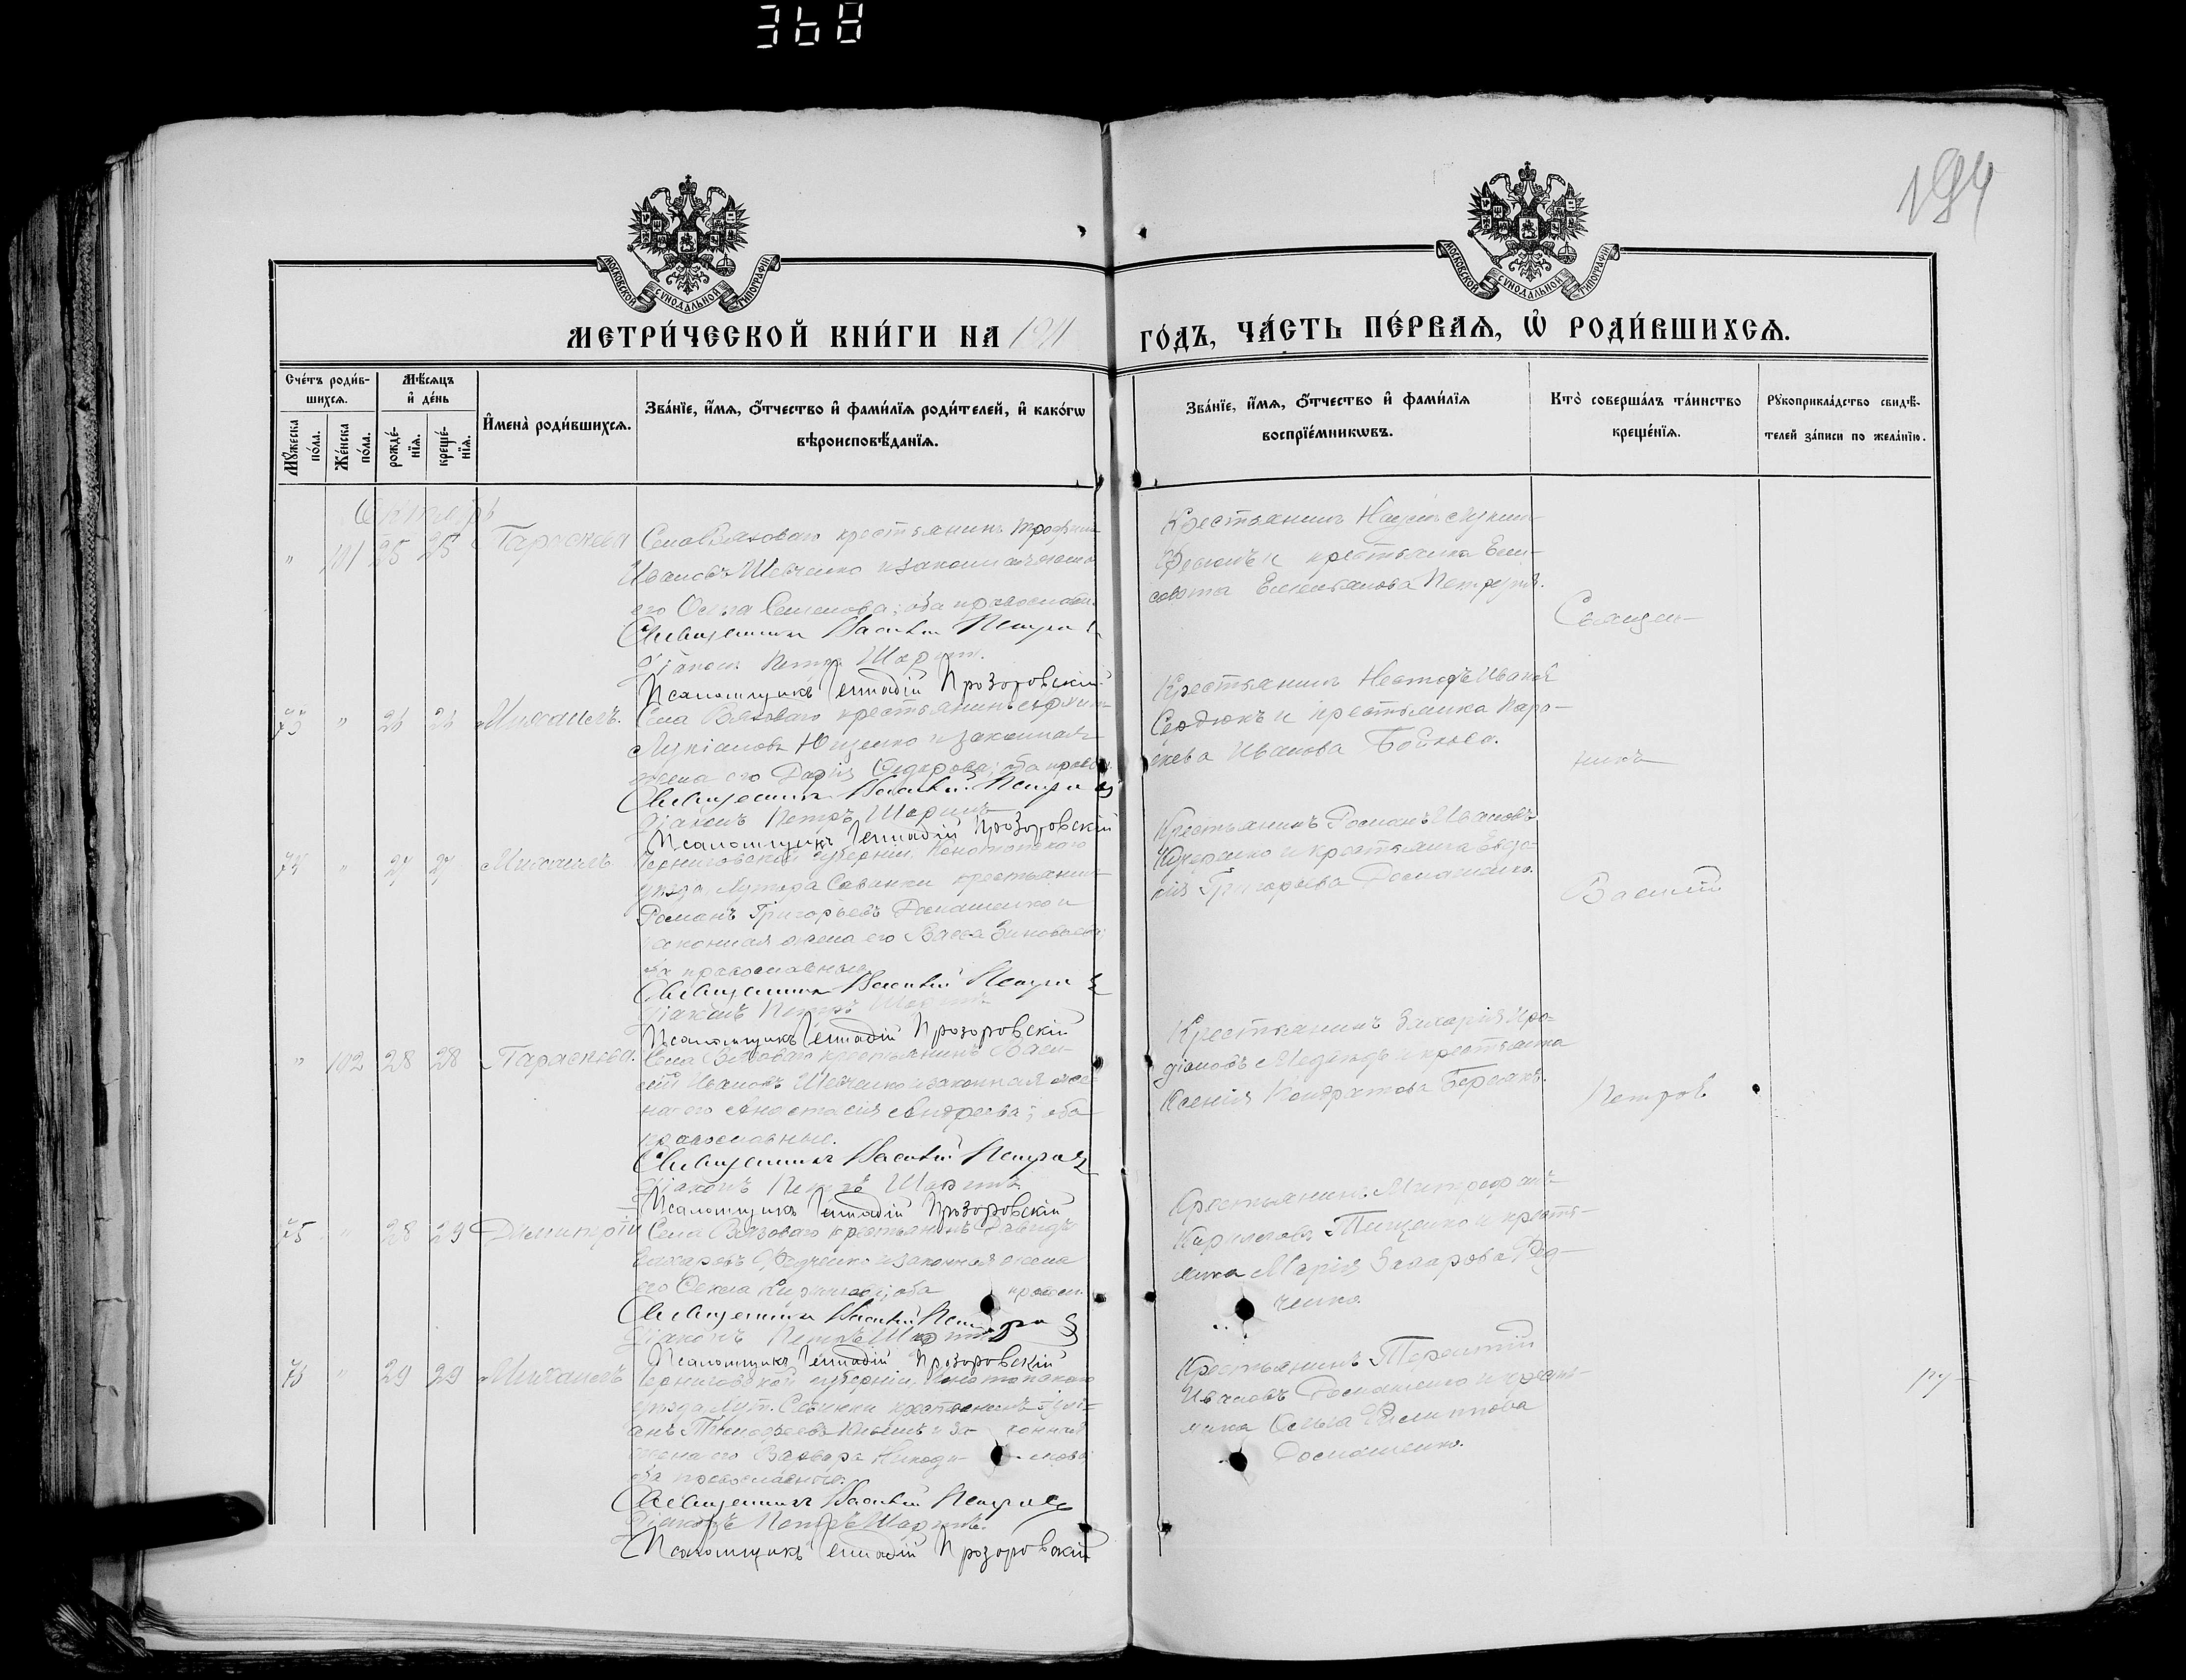 368
194
МОСКОВСКОЙ СѴНОДАЛЬНОЙ ТИПОГРАФІИ
МОСКОВСКОЙ СѴНОДАЛЬНОЙ ТИПОГРАФІИ
МЕТРИ́ЧЕСКОЙ КНИ́ГИ НА 1911 ГО́ДЪ, ЧА́СТЬ ПЕ́РВАЯ, Ѡ РОДИ́ВШИХСЯ.
Сче́тъ роди́в-
шихся.
Мѣ́сяцъ
и де́нь
Мꙋ́жеска
по́ла.
Же́нска
по́ла.
рожде́-
нїя.
креще́-
нїя.
И҆мена̀ роди́вшихся.
Зва́нїе, и҆́мя, ѻ҆́тчество и҆ фами́лїя роди́телей, и҆ како́гѡ
вѣроисповѣ́данїя.
Зва́нїе, и҆́мя, ѻ҆́тчество и҆ фами́лїя
воспрїе́мникѡвъ.
Кто̀ соверша́лъ та́инство
креще́нїя.
Рꙋкоприкла́дство свидѣ́-
телей за́писи по жела́нїю.
" 101 25 25 Параскева Села Вязоваго крестьянинъ Трофим
Ивановъ Шевченко и законная жена
его Ольга Семенова; оба православн.
Священникъ Василій Петров
Діаконъ Петръ
Псаломщикъ Геннадій Прозоровскій
Крестьянинъ Наумъ
и крестьянка Ели-
савета Емельянова
73 " 26 26 Михаилъ. Села Вязоваго крестьянинъ
Лукіановъ Ющенко и законная
жена его Дарія Сидорова; оба правосл.
Священникъ Василій Петров
Діаконъ Петръ
Псаломщикъ Геннадій Прозоровскій
Крестьянинъ Несторъ Ивановъ
Сердюкъ и крестьянка Пара-
скева Иванова
74 " 27 27 Михаилъ Черниговской губерніи, Конотопскаго
уѣзда, хутора Савинки крестьянинъ
Романъ Григорьевъ Домашенко и
законная жена его Васса Зиновьева;
оба православные.
Священникъ Василій Петров
Діаконъ Петръ
Псаломщикъ Геннадій Прозоровскій
Крестьянинъ Романъ Ивановъ
Кучеренко и крестьянка Евдо-
кія Григорьева Домашенко.
" 102 28 28 Параскева. Села Вязоваго крестьянинъ Васи-
лій Ивановъ Шевченко и законная же-
на его Анастасія Андреева; оба
православные.
Священникъ Василій Петров
Діаконъ Петръ
Псаломщикъ Геннадій Прозоровскій
Крестьянинъ Захарія Иро-
діоновъ Медвѣдь и крестьянка
Ксенія Кондратова
75 " 28 29 Димитрій Села Вязоваго крестьянинъ Давидъ
Захаровъ Редченко и законная жена
его Оекла оба правосл.
Священникъ Василій Петров
Діаконъ Петръ
Псаломщикъ Геннадій Прозоровскій
Крестьянинъ Митрофанъ
Кирилловъ Тищенко и кресть-
янка Марія Захарова Ред-
ченко.
76 " 29 29 Михаилъ Черниговской губерніи, Конотопскаго
уѣзда, хут. Савинки крестьянинъ
Тимофеевъ и законная
жена его Варвара Никоди-мова
оба православные.
Священникъ Василій Петров
Діаконъ Петръ
Псаломщикъ Геннадій Прозоровскій
Крестьянинъ Терентій
Ивановъ Домашенко и кресть-
янка Ольга Филиппова
Домашенко.
Священ-
никъ
Василій
Петров